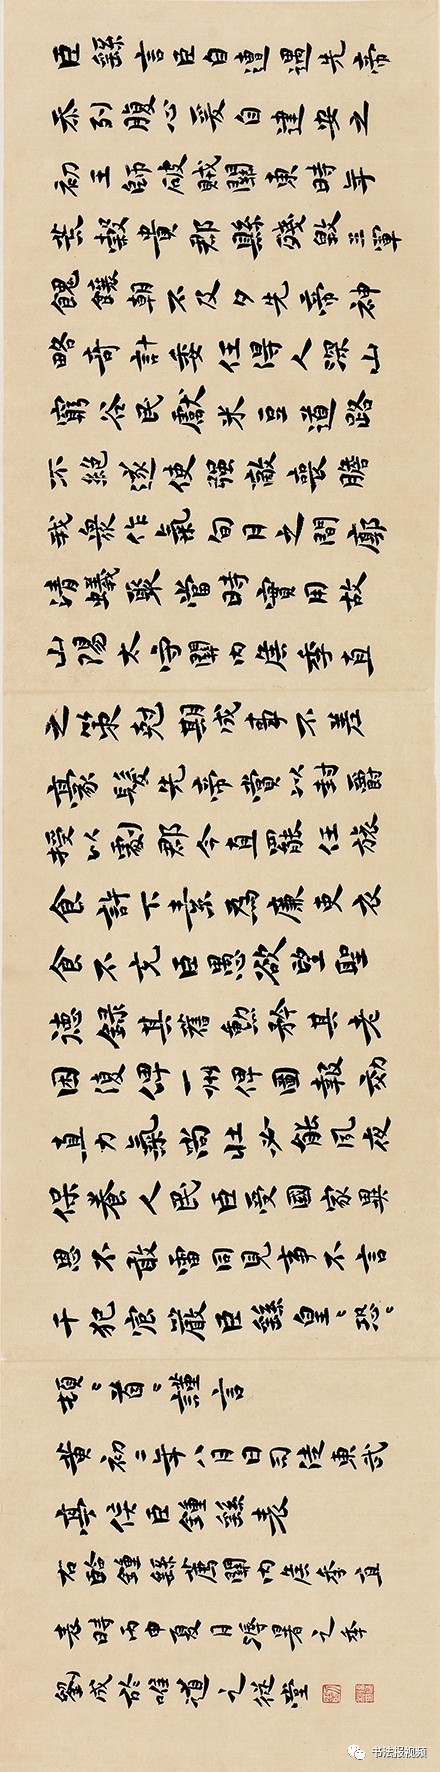 臣繇言臣自遭遇先帝
忝列腹心爰自建安之
初王師破賊關東時年
荒穀貴郡縣殘毀三軍
餽饟朝不及夕先帝神
略奇計委任得人深山
窮谷民獻米豆道路
不絕遂使强敵喪膽
我衆作氣旬月之間廓
清蟻聚當時實用故
山陽太守關內侯季直
之策尅期成事不差
豪髮先帝賞以封爵
授以劇郡今直罷任旅
食許下素為廉吏衣
食不充臣愚欲望聖
德錄其舊勳矜其老
困復俾一州俾圖報効
直力氣尚壯必能夙夜
保養人民臣受國家異
恩不敢雷同見事不言
干犯宸嚴臣繇皇〻恐〻
頓〻首〻謹言
黃初二年八月日司徒東武
亭侯臣鍾繇表
右臨鍾繇薦關內侯季直
表時丙申夏月溽暑之季
劉成於唯道之從堂
书法报视频